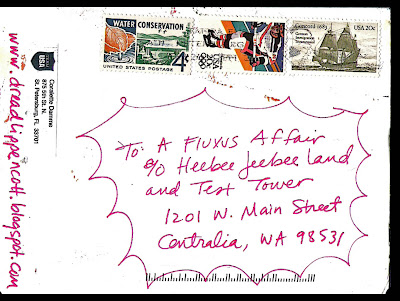 www.dreadlippencott.blogspot.com
USA
Coralette Damme
875 5th St. N.
St. Petersburg, FL 33701
WATER CONSERVATION
4¢
UNITED STATES POSTAGE
USA 20c
To: A Fluxus Affair
c/o Heebee Jeebee land
and Test Tower
1201 W. Main Street
Centralia, WA 98531